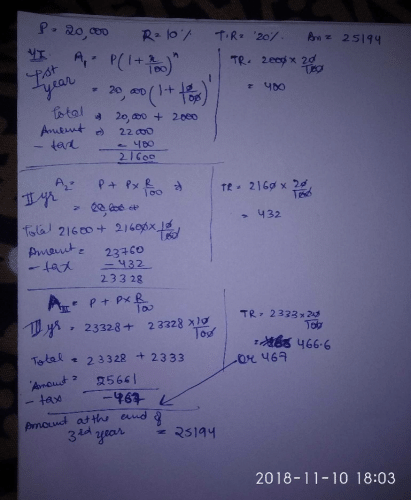 P = 20,000 R = 10% T.R = 20% An = 25194
Ist year
A₁ = P(1 + R/100)ⁿ
= 20,000(1 + 10/100)¹
Total ⇒ 20,000 + 2000
Amount ⇒ 22000
- tax = 400
21600
TR = 2000 × 20/100
= 400
II yr
A₂ = P + P×R/100 ⇒
Total 21600 + 21600×10/100
Amount = 23760
- tax - 432
23328
TR = 2160 × 20/100
= 432
A III = P + P×R/100
III yr = 23328 + 23328×10/100
Total = 23328 + 2333
Amount = 25661
- tax - 467
Amount at the end of
3rd year = 25194
TR = 2333×20/100
= 466.6
or 467
2018-11-10 18:03